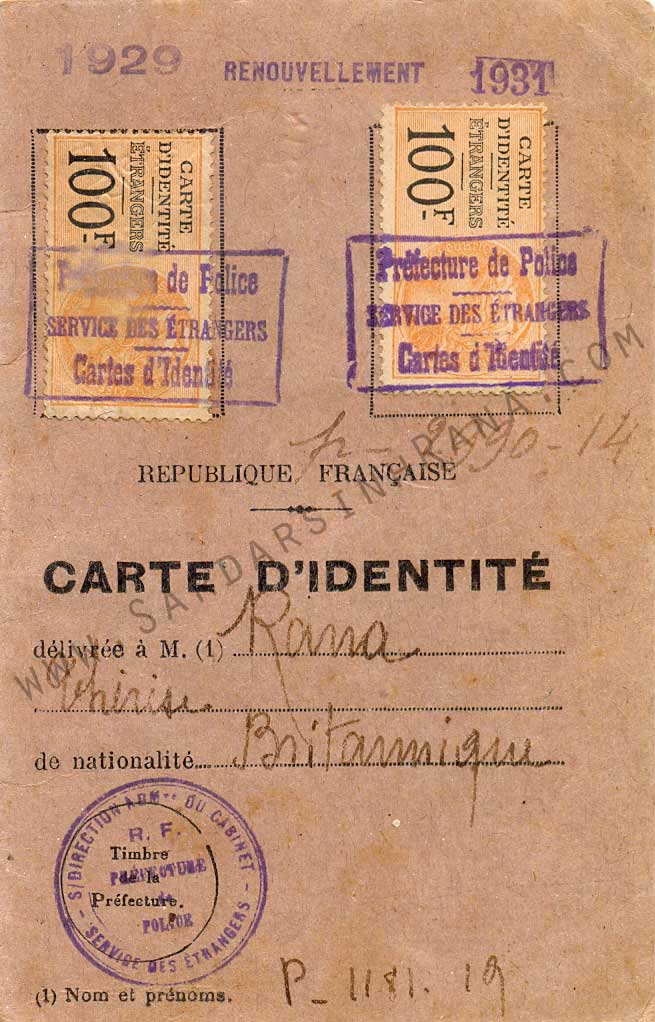 1929 RENOUVELLEMENT 1931
CARTE
D'IDENTITÉ
ÉTRANGERS
100F
CARTE
D'IDENTITÉ
ÉTRANGERS
100F
Préfecture de Police
SERVICE DES ÉTRANGERS
Cartes d'Identité
Préfecture de Police
SERVICE DES ÉTRANGERS
Cartes d'Identité
REPUBLIQUE FRANÇAISE
CARTE D'IDENTITÉ
délivrée à M. (1) Rana
Thérise
de nationalité Britannique
S/DIRECTION ADMve DU CABINET
R. F.
Timbre
de la
Préfecture.
PRÉFECTURE
de
POLICE
SERVICE DES ÉTRANGERS
(1) Nom et prénoms.
P_1181.19
WWW.SARDARSINHRANA.COM